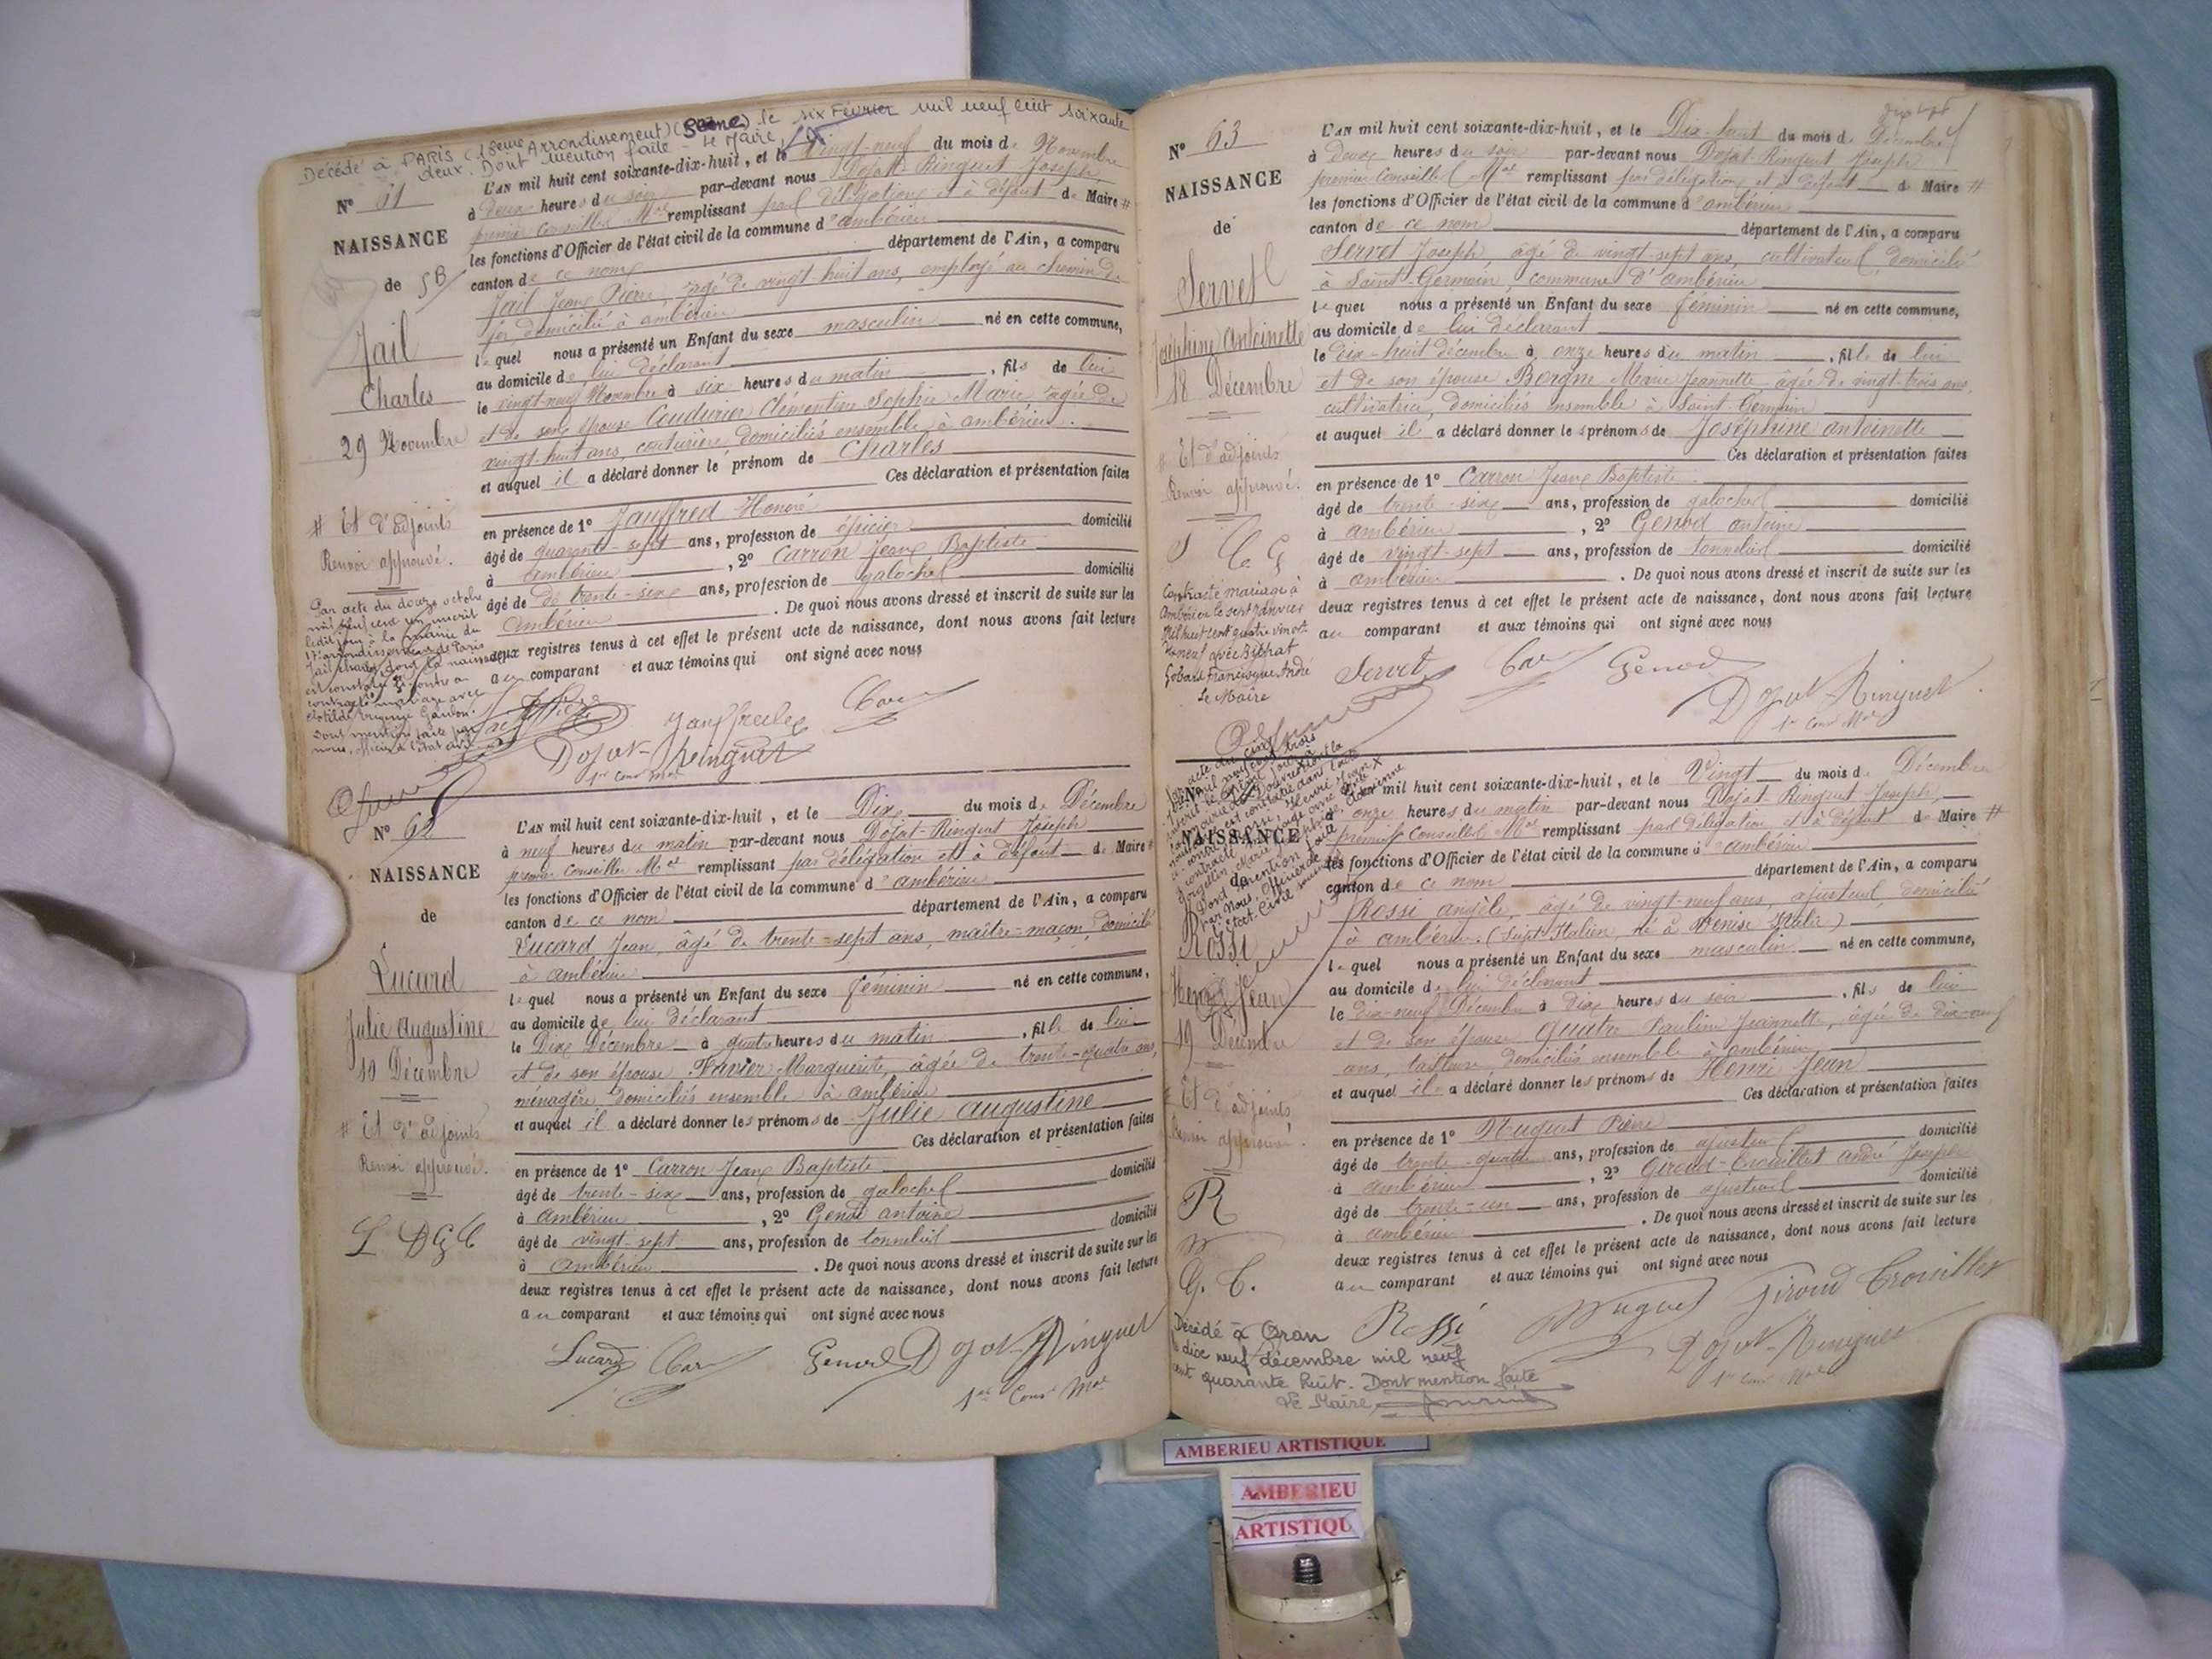 Décédé à PARIS (18eme Arrondissement) (Seine) le six Février mil neuf cent soixante
deux. Dont mention faite - Le Maire,
N° 61
NAISSANCE
de
Jail
Charles
29 Novembre
# Et d'adjoints
Renvoi approuvé.
Par acte du douze octobre
mil neuf cent un inscrit
ledit jour à la mairie du
17e arrondissement de Paris
Jail Charles dont la naissance
est constatée ci-contre a
contracté mariage avec
Clotilde Eugénie Gaudon.
Dont mention faite par
nous, officier de l'état civil
L'AN mil huit cent soixante-dix-huit, et le Vingt-neuf du mois de Novembre
à deux heures du soir par-devant nous Dojat-Ringuet Joseph,
premier Conseiller Mal remplissant par délégation et à défaut de Maire #
les fonctions d'Officier de l'état civil de la commune d'ambérieu
canton de ce nom département de l'Ain, a comparu
Jail Jean Pierre, âgé de vingt huit ans, employé au chemin de
fer, domicilié à ambérieu
lequel nous a présenté un Enfant du sexe masculin né en cette commune,
au domicile de lui déclarant
le vingt-neuf Novembre à six heures du matin, fils de lui
et de son épouse Coudurier Clémentine Sophie Marie âgée de
vingt-huit ans, couturière domiciliés ensemble à ambérieu.
et auquel il a déclaré donner le prénom de Charles
Ces déclaration et présentation faites
en présence de 1° Jauffred Honoré
âgé de quarante-sept ans, profession de épicier domicilié
à ambérieu, 2° Carron Jean Baptiste
âgé de trente-six ans, profession de galocher domicilié
ambérieu. De quoi nous avons dressé et inscrit de suite sur les
deux registres tenus à cet effet le présent acte de naissance, dont nous avons fait lecture
au comparant et aux témoins qui ont signé avec nous
Dojat-Ringuet
1er Cons Mal
N° 62
NAISSANCE
de
Lucard
Julie Augustine
10 Décembre
# Et d'adjoints
Renvoi approuvé.
L'AN mil huit cent soixante-dix-huit, et le Dix du mois de Décembre
à neuf heures du matin par-devant nous Dojat-Ringuet Joseph
premier Conseiller Mal remplissant par délégation et à défaut de Maire #
les fonctions d'Officier de l'état civil de la commune d'ambérieu
canton de ce nom département de l'Ain, a comparu
Lucard Jean, âgé de trente-sept ans, maître-maçon, domicilié
à ambérieu
lequel nous a présenté un Enfant du sexe féminin né en cette commune,
au domicile de lui déclarant
le Dix Décembre à quatre heures du matin, fille de lui
et de son épouse Favier Marguerite, âgée de trente-quatre ans,
ménagère domiciliés ensemble à ambérieu
et auquel il a déclaré donner les prénoms de Julie augustine
Ces déclaration et présentation faites
en présence de 1° Carron Jean Baptiste
âgé de trente-six ans, profession de galocher domicilié
à ambérieu, 2° Genod antoine
âgé de vingt-sept ans, profession de tonnelier domicilié
à ambérieu. De quoi nous avons dressé et inscrit de suite sur les
deux registres tenus à cet effet le présent acte de naissance, dont nous avons fait lecture
au comparant et aux témoins qui ont signé avec nous
Lucard Car Genod Dojat-Ringuet
1er Cons Mal
N° 63
NAISSANCE
de
Servet
Joséphine Antoinette
18 Décembre
# Et d'adjoints
Renvoi approuvé.
S C G
Contracté mariage à
Ambérieu le sept janvier
Mil huit cent quatre vingt
Gobard Françisque André
Le Maire
L'AN mil huit cent soixante-dix-huit, et le Dix-huit du mois de Décembre
à Deux heures du soir par-devant nous Dojat-Ringuet Joseph
premier Conseiller Mal remplissant par délégation et à défaut de Maire #
les fonctions d'Officier de l'état civil de la commune d'ambérieu
canton de ce nom département de l'Ain, a comparu
Servet Joseph, âgé de vingt-sept ans, cultivateur, domicilié
à Saint-Germain, commune d'ambérieu
lequel nous a présenté un Enfant du sexe féminin né en cette commune,
au domicile de lui déclarant
le dix-huit décembre à onze heures du matin, fille de lui
et de son épouse Borgne Marie Jeannette âgée de vingt-trois ans,
cultivatrice, domiciliés ensemble à Saint-Germain
et auquel il a déclaré donner les prénoms de Joséphine antoinette
Ces déclaration et présentation faites
en présence de 1° Carron Jean Baptiste
âgé de trente-six ans, profession de galocher domicilié
à ambérieu, 2° Genod antoine
âgé de vingt-sept ans, profession de tonnelier domicilié
à ambérieu. De quoi nous avons dressé et inscrit de suite sur les
deux registres tenus à cet effet le présent acte de naissance, dont nous avons fait lecture
au comparant et aux témoins qui ont signé avec nous
Servet Car Genod
Dojat-Ringuet
1er Cons Mal
NAISSANCE
de
Rossi
Henri Jean
19 Décembre
# Et d'adjoints
Renvoi approuvé.
R
G. C.
mil huit cent soixante-dix-huit, et le Vingt du mois de Décembre
à onze heures du matin par-devant nous Dojat-Ringuet Joseph,
premier Conseiller Mal remplissant par délégation et à défaut de Maire #
les fonctions d'Officier de l'état civil de la commune d'ambérieu
canton de ce nom département de l'Ain, a comparu
Rossi angèle, âgé de vingt-neuf ans, ajusteur, domicilié
à ambérieu. (Sujet Italien, né à Venise Italie)
lequel nous a présenté un Enfant du sexe masculin né en cette commune,
au domicile de lui déclarant
le dix-neuf Décembre à dix heures du soir, fils de lui
et de son épouse quatre Pauline Jeannette, âgée de dix-neuf
ans, tailleuse domiciliés ensemble à ambérieu
et auquel il a déclaré donner les prénoms de Henri Jean
Ces déclaration et présentation faites
en présence de 1° Huguet Pierre
âgé de trente-quatre ans, profession de ajusteur domicilié
à ambérieu, 2° Giroud-Crouillet andré Joseph
âgé de trente-un ans, profession de ajusteur domicilié
à ambérieu. De quoi nous avons dressé et inscrit de suite sur les
deux registres tenus à cet effet le présent acte de naissance, dont nous avons fait lecture
au comparant et aux témoins qui ont signé avec nous
Rossi Huguet Giroud Crouillet
Dojat-Ringuet
1er Cons Mal
Décédé à Oran
le dix neuf décembre mil neuf
cent quarante huit. Dont mention faite
Le Maire
AMBERIEU ARTISTIQUE
AMBERIEU
ARTISTIQU